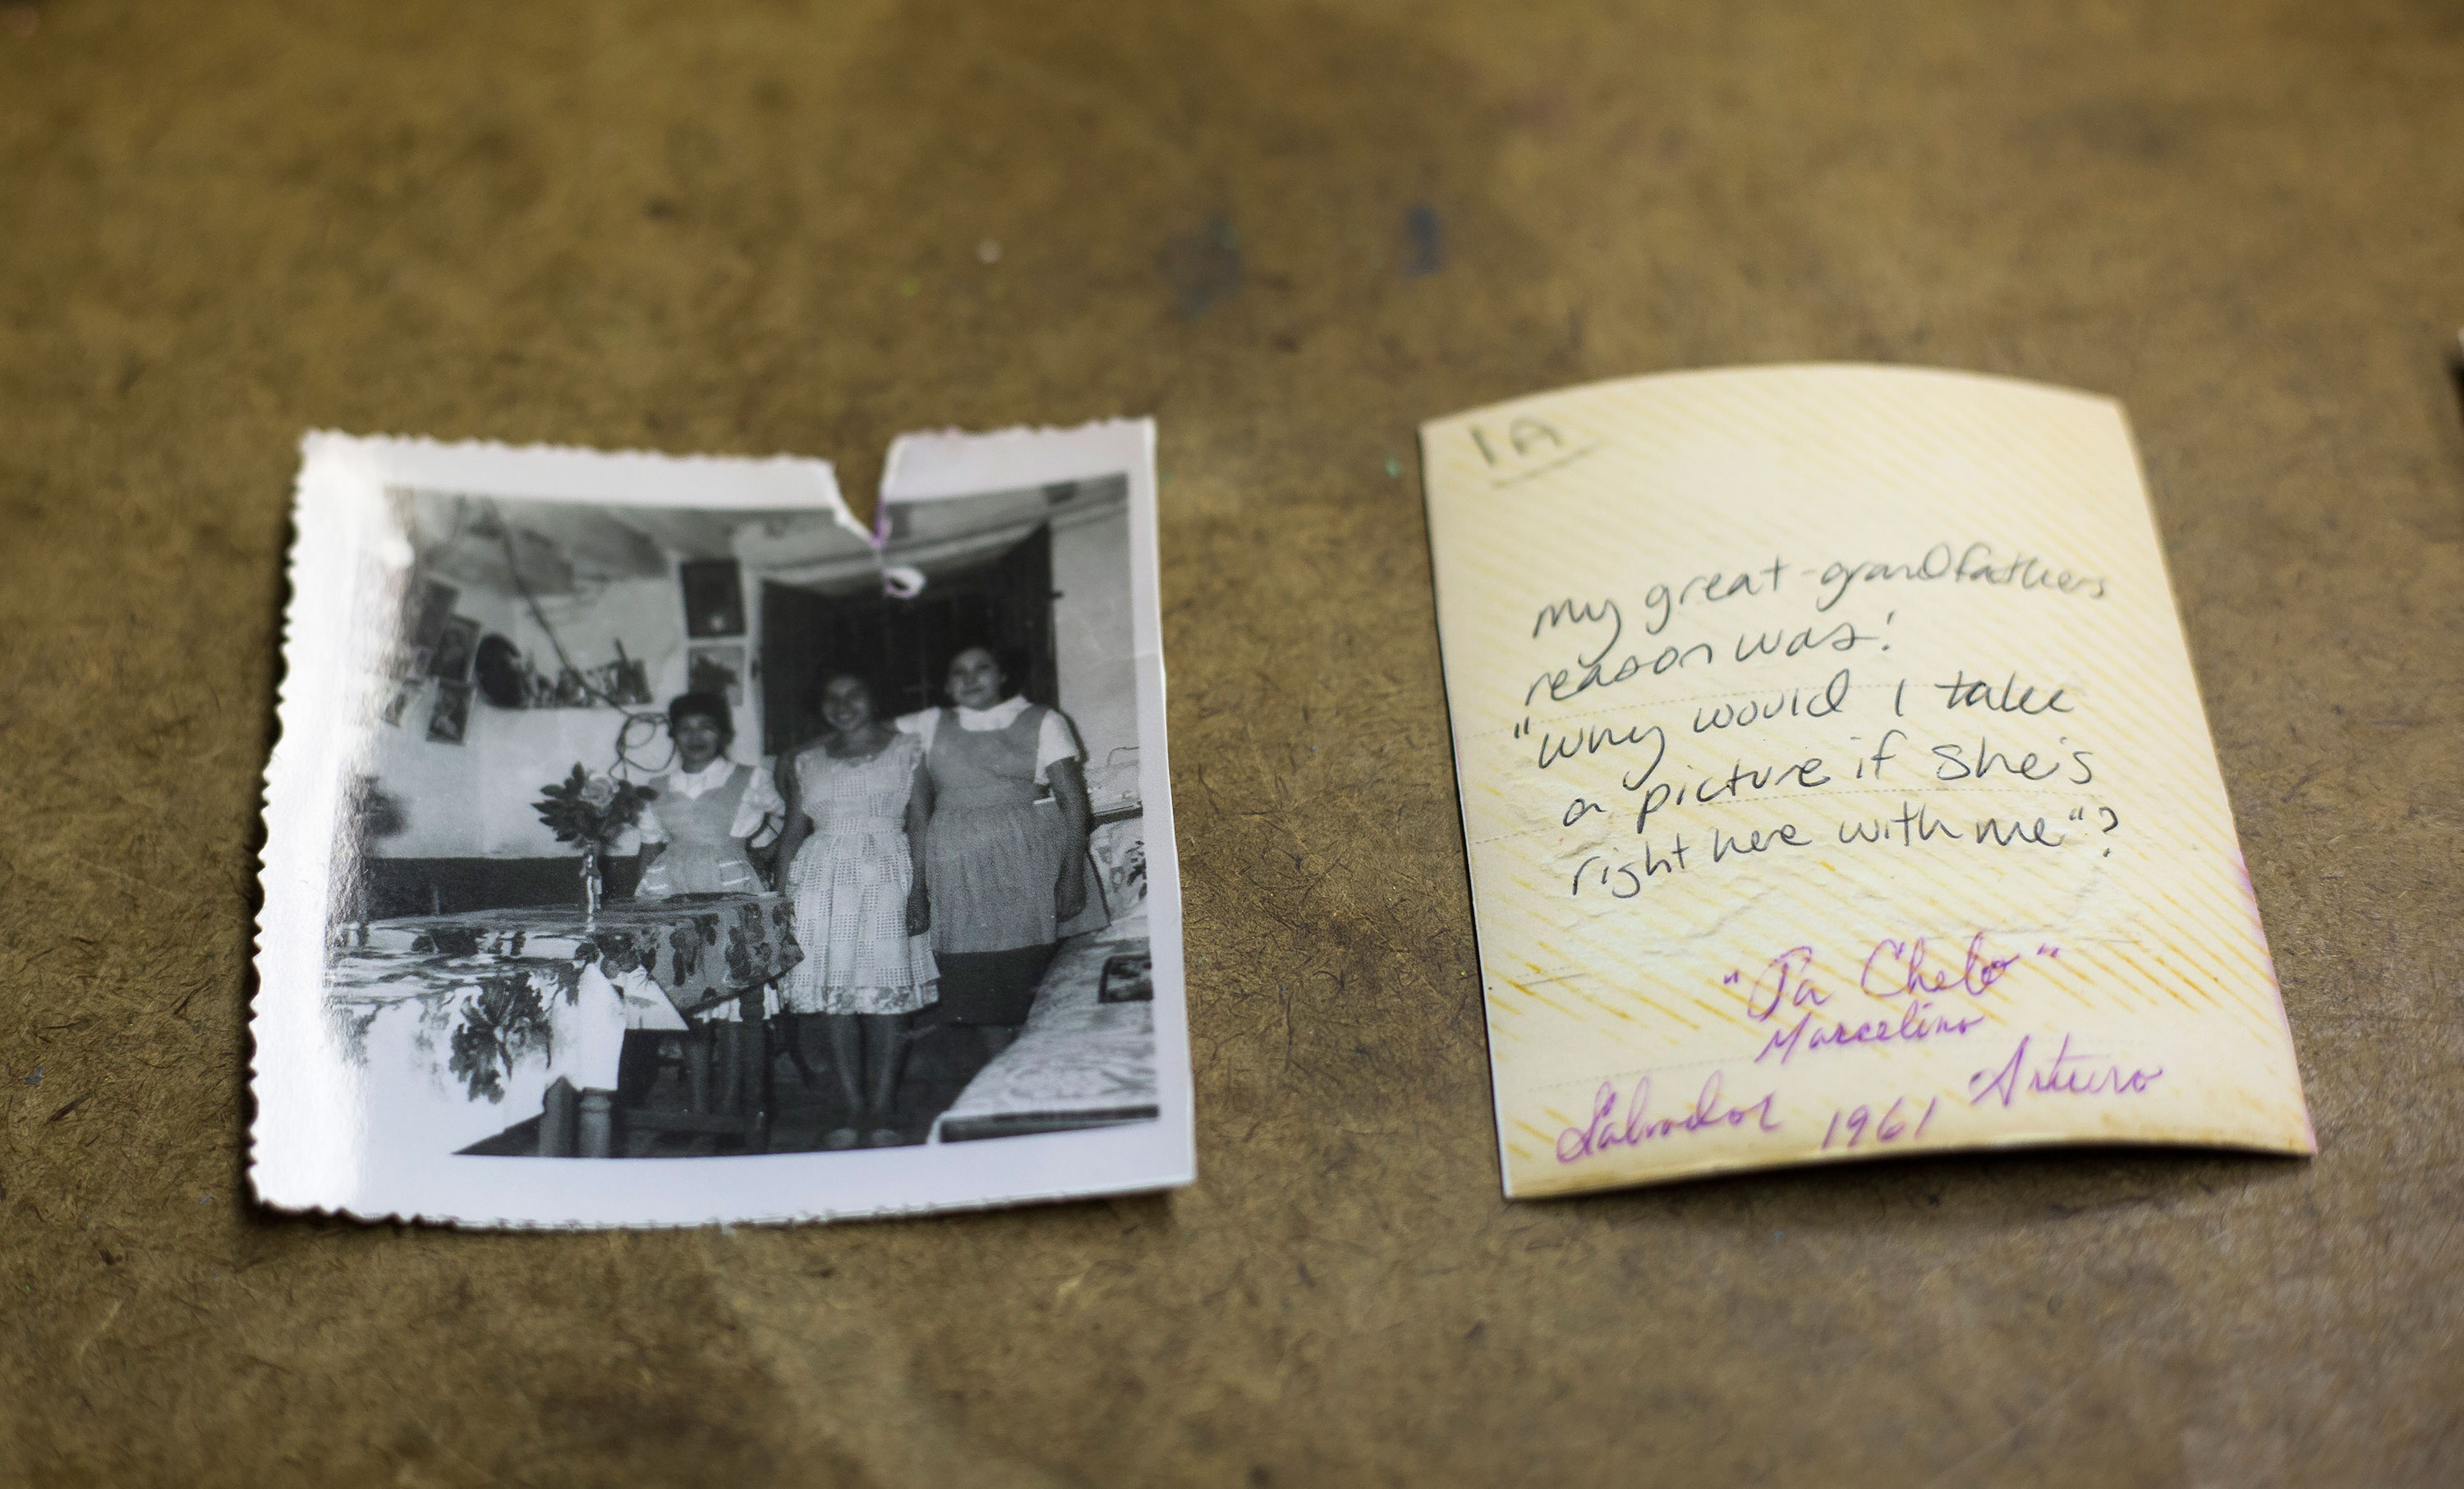 1A
my great-grandfathers
reason was:
"why would I take
a picture if she's
right here with me"?
"Pa Chelo"
Marcelino
Salvador 1961 Arturo